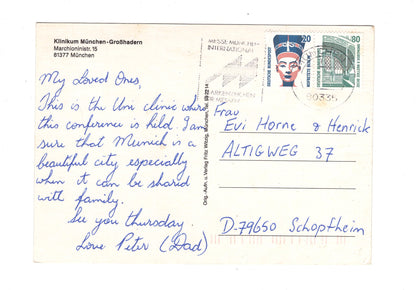 Klinikum München-Großhadern
Marchioninistr. 15
81377 München
My Loved Ones,
This is the Uni clinic where
this conference is held. I am
sure that Munich is a
beautiful city especially
when it can be shared
with family.
See you thursday.
Love Peter (Dad)
MESSE MÜNCHEN
INTERNATIONAL
20
80
DEUTSCHE BUNDESPOST
80335
Frau
Evi Horne & Henrick
ALTIGWEG 37
D-79650 Schopfheim